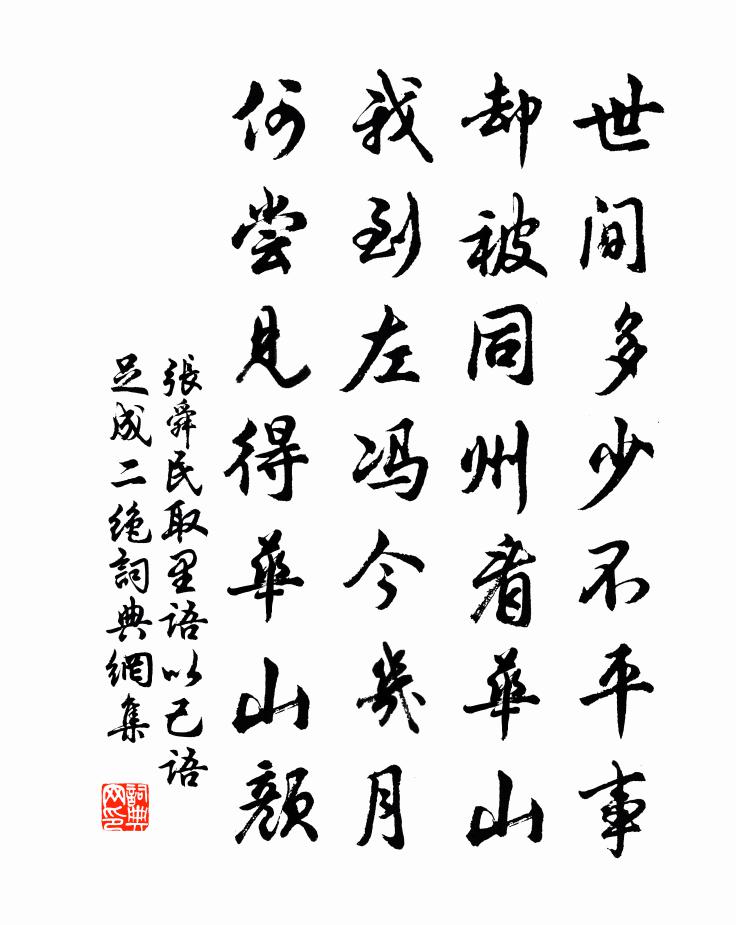 世间多少不平事
却被同州看華山
我到左冯今幾月
何尝見得華山颜
張舜民取里语以己语
足成二绝詞典網集
詞典网印